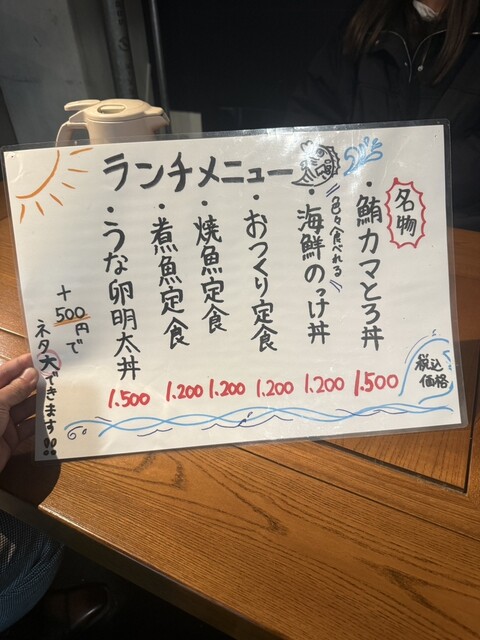 ランチメニュー
名物
・鮪カマとろ丼
1.500
色々食べれる
・海鮮のっけ丼
1.200
・おつくり定食
1.200
・焼魚定食
1.200
・煮魚定食
1.200
・うな卵明太丼
1.500
+500円で
ネタ大できます!!
税込
価格